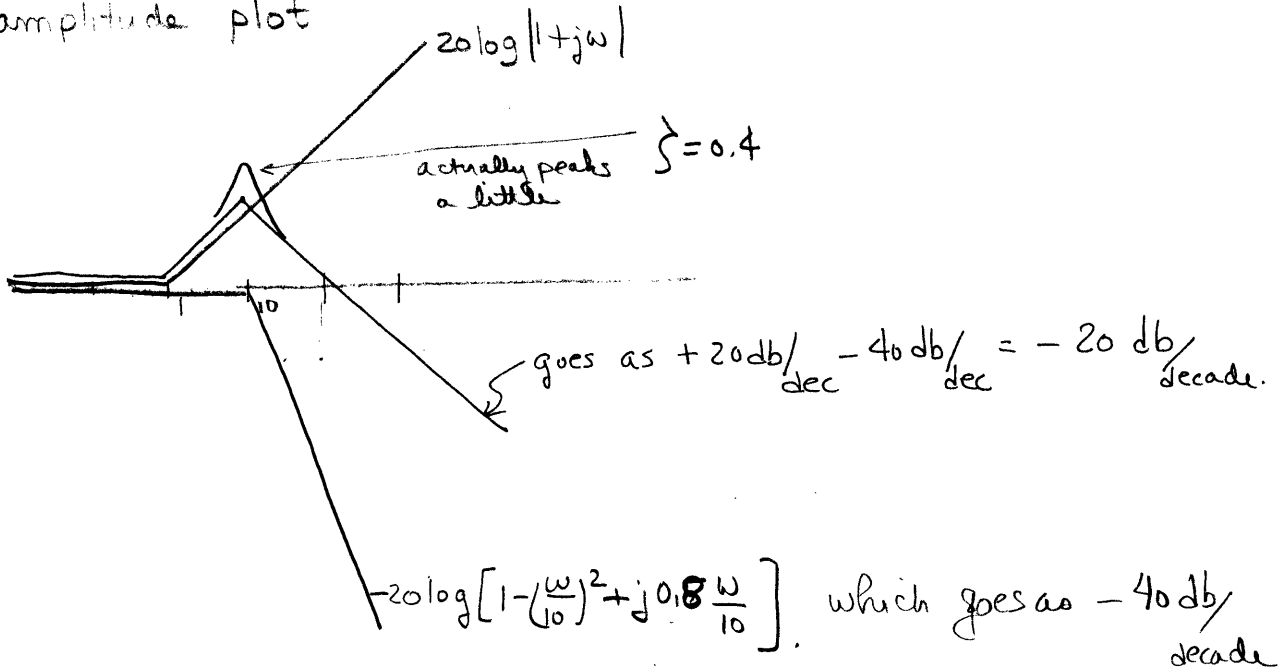 amplitude plot
20log|1+jω|
ζ=0.4
actually peaks
a little
1
10
goes as +20db/dec - 40db/dec = - 20 db/decade.
-20log[1-(ω/10)²+j0.8 ω/10]. which goes as - 40 db/decade